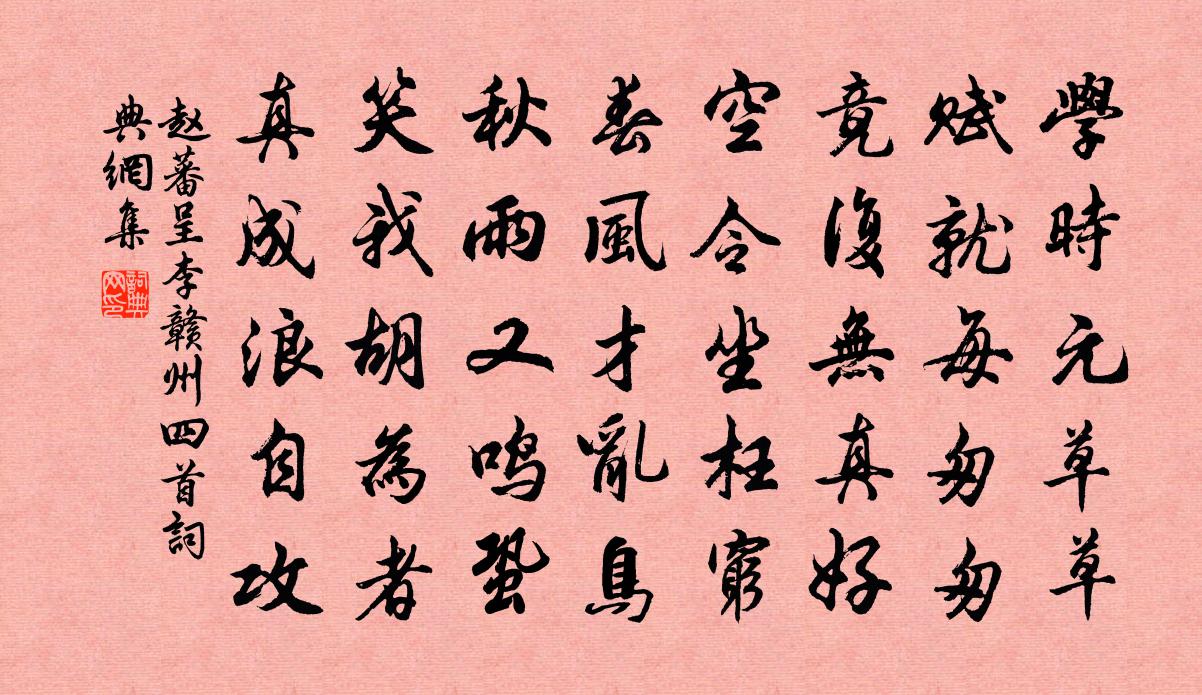 學時元草草
賦就每匆匆
竟復無真好
空令坐枉窮
春風才亂鳥
秋雨又鳴蛩
笑我胡為者
真成浪自攻
赵蕃呈李贛州四首詞
典網集
詞典
网印